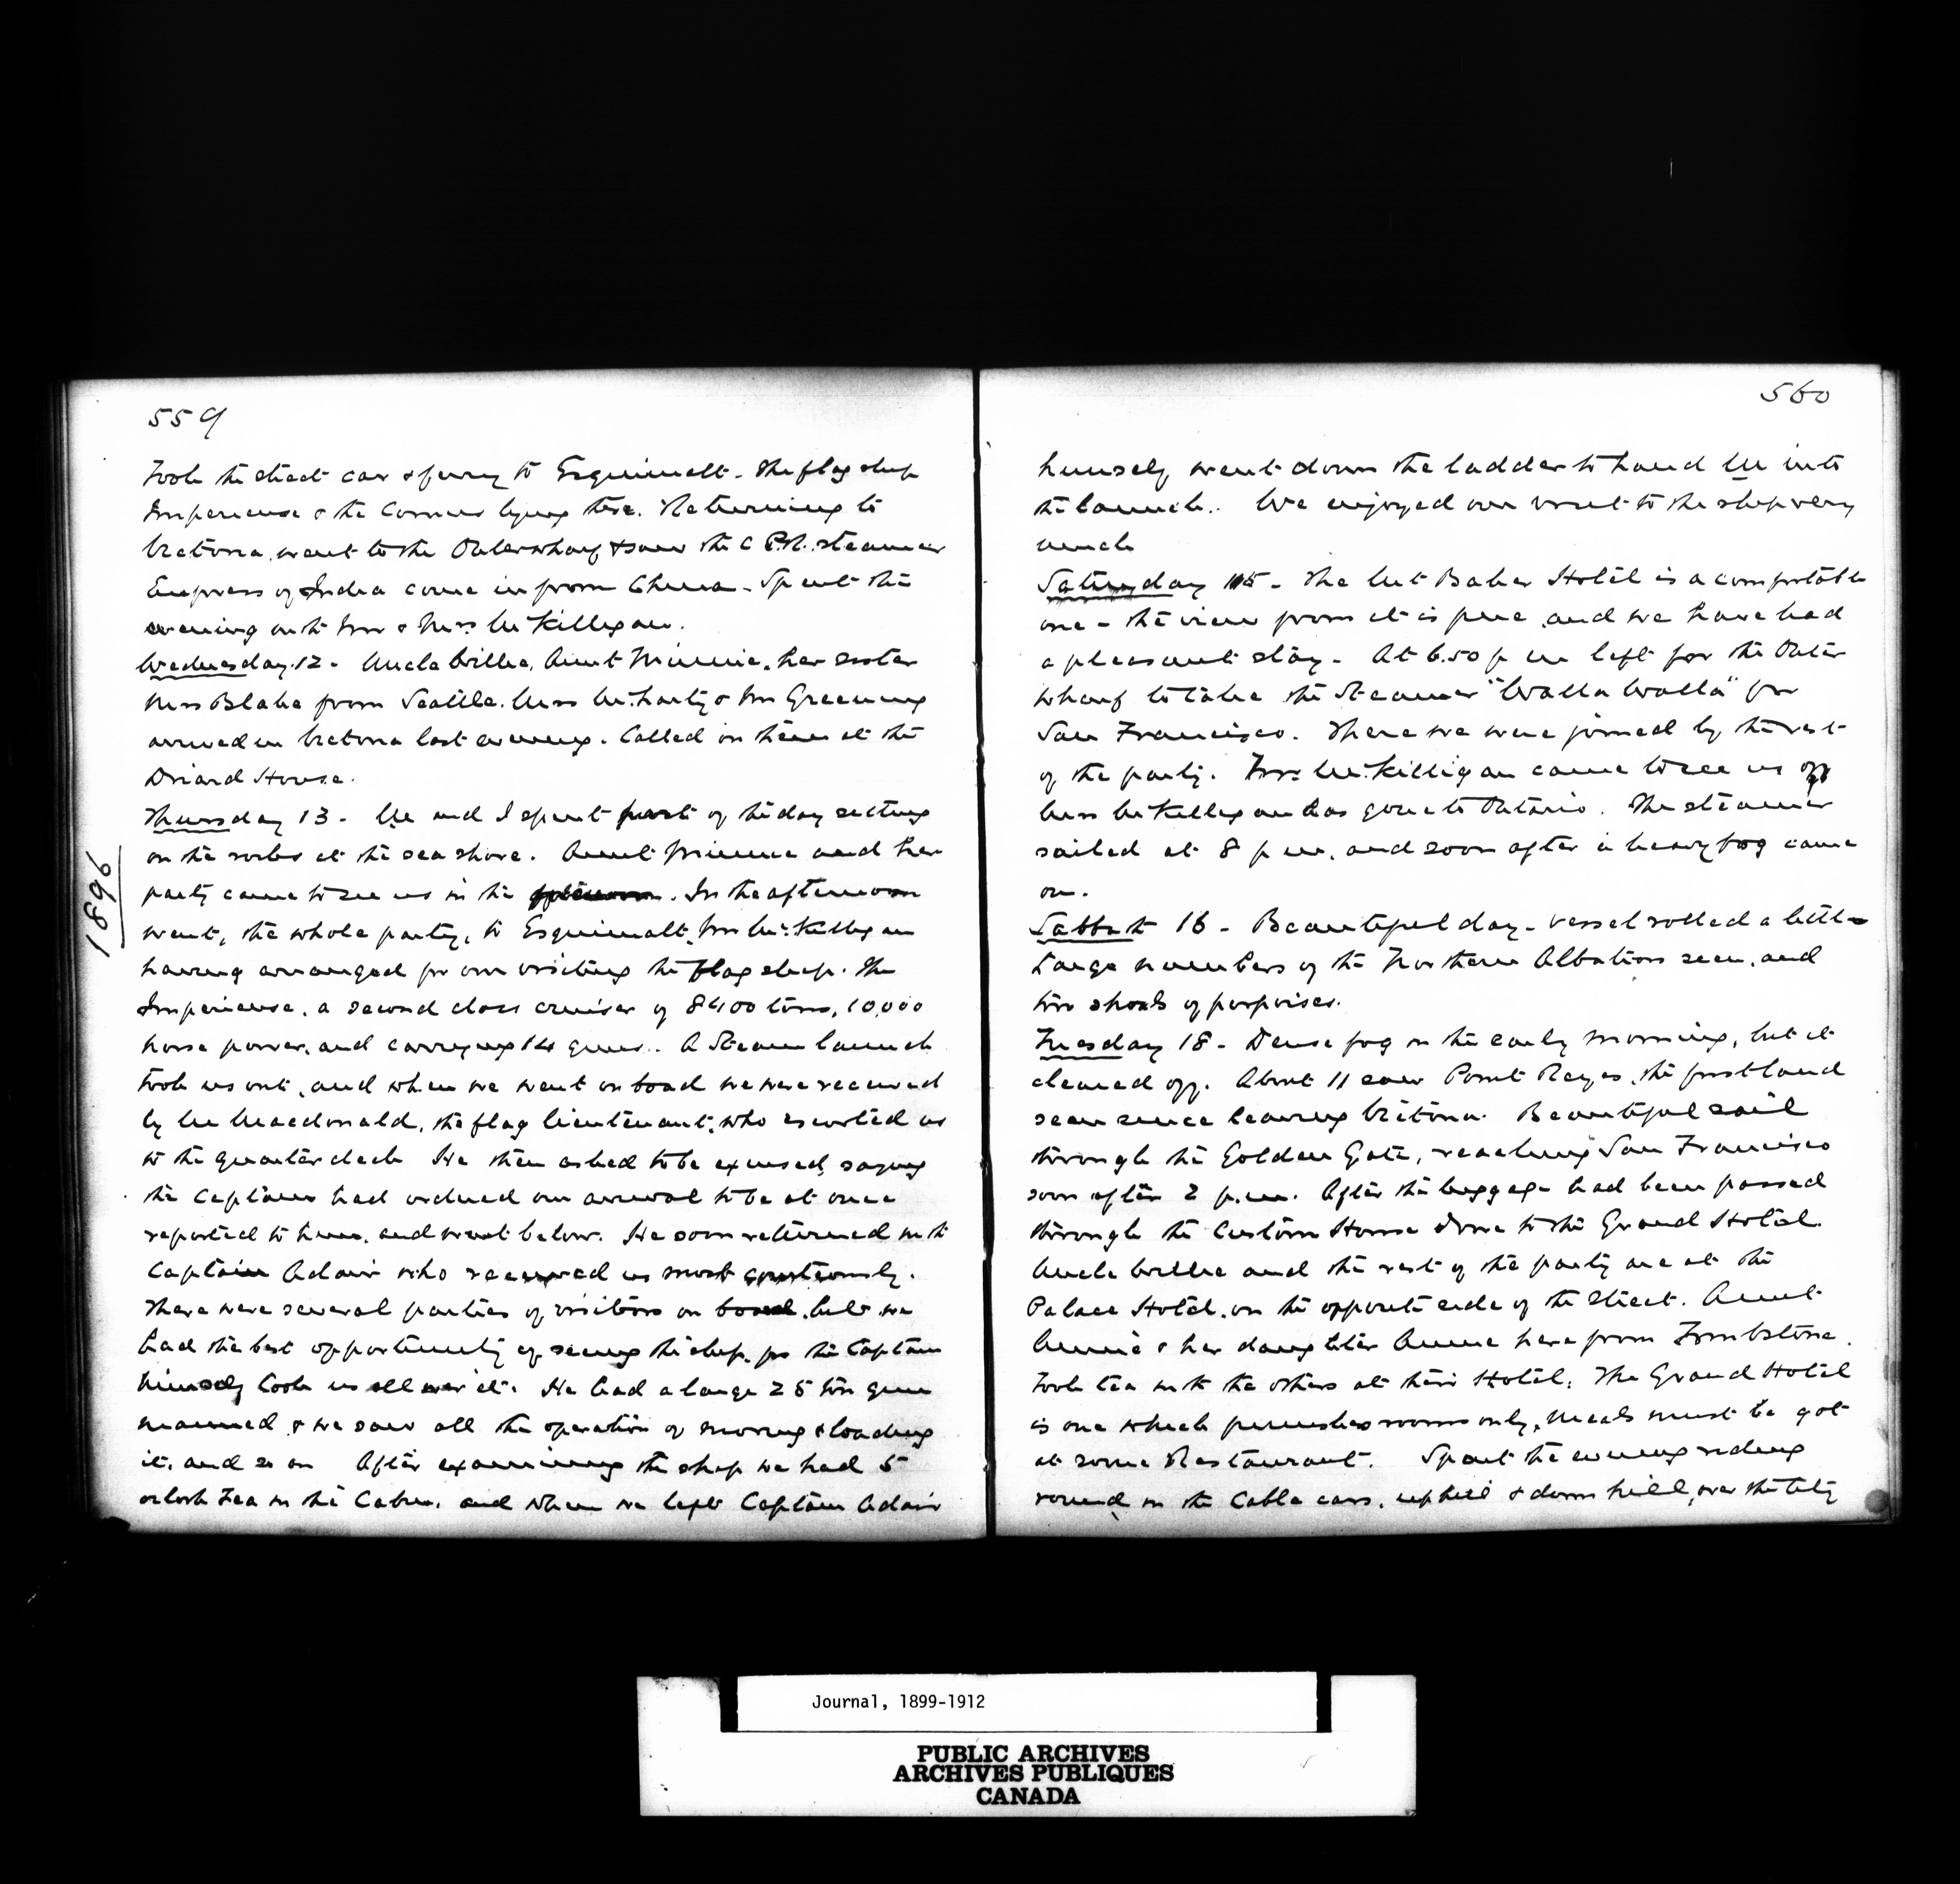 559
Took the street car & ferry to Esquimalt - the flag ship
Imperieuse & the Comus lying there. Returning to
Victoria went to the Outer wharf & saw the C P.R. steamer
Empress of India come in from China - Spent the
evening with Mr & Mrs McKilligan.
Wednesday 12 - Uncle Willie, Aunt Minnie, her sister
Mrs Blake from Seattle, Miss & Mr Greening
arrived in Victoria last evening. Called on them at the
Driard House.
Thursday 13 - M and I spent part of the day sitting
on the rocks at the sea shore. Aunt Minnie and her
party came to see us in the afternoon. In the afternoon
went, the whole party, to Esquimalt, Mr McKilligan
having arranged for our visiting the flag ship. The
Imperieuse, a second class cruiser of 8400 tons, 10,000
horse power, and carrying 14 guns.. A Steam launch
took us out, and when we went on board we were received
by Mr Macdonald, the flag lieutenant, who escorted us
to the quarter deck He then asked to be excused, saying
the Captain had ordered our arrival to be at once
reported to him, and went below. He soon returned with
Captain Adair who received us most courteously.
There were several parties of visitors on board, but we
had the best opportunity of seeing the ship, for the Captain
himself took us all over it. He had a large 25 ton gun
manned & we saw all the operation of moving & loading
it, and so on After examining the ship we had 5
oclock Tea in the Cabin, and when we left Captain Adair
1896
560
himself went down the ladder to hand M into
the launch.. We enjoyed our visit to the ship very
much
Saturday 15 - The Mt Baker Hotel is a comfortable
one - the view from it is fine, and we have had
a pleasant stay - At 6.50 p m left for the Outer
wharf to take the Steamer "Walla Walla" for
San Francisco. There we were joined by the rest
of the party. Mr McKilligan came to see us off
Mrs McKilligan has gone to Ontario. The steamer
sailed at 8 p m, and soon after a heavy fog came
on.
Sabbath 16 - Beautiful day - vessel rolled a little
Large numbers of the Northern Albatross seen, and
two shoals of porpoises.
Tuesday 18 - Dense fog in the early morning, but it
cleared off. About 11 saw Point Reyes, the first land
seen since leaving Victoria. Beautiful sail
through the Golden Gate, reaching San Francisco
soon after 2 p.m. After the luggage had been passed
through the Custom House drove to the Grand Hotel.
Uncle Willie and the rest of the party are at the
Palace Hotel, on the opposite side of the Street. Aunt
Annie & her daughter Annie here from Tombstone.
Took tea with the others at their Hotel. The Grand Hotel
is one which furnishes rooms only, meals must be got
at some Restaurant. Spent the evening riding
round in the Cable cars, up hill & down hill, over the City
Journal, 1899-1912
PUBLIC ARCHIVES
ARCHIVES PUBLIQUES
CANADA